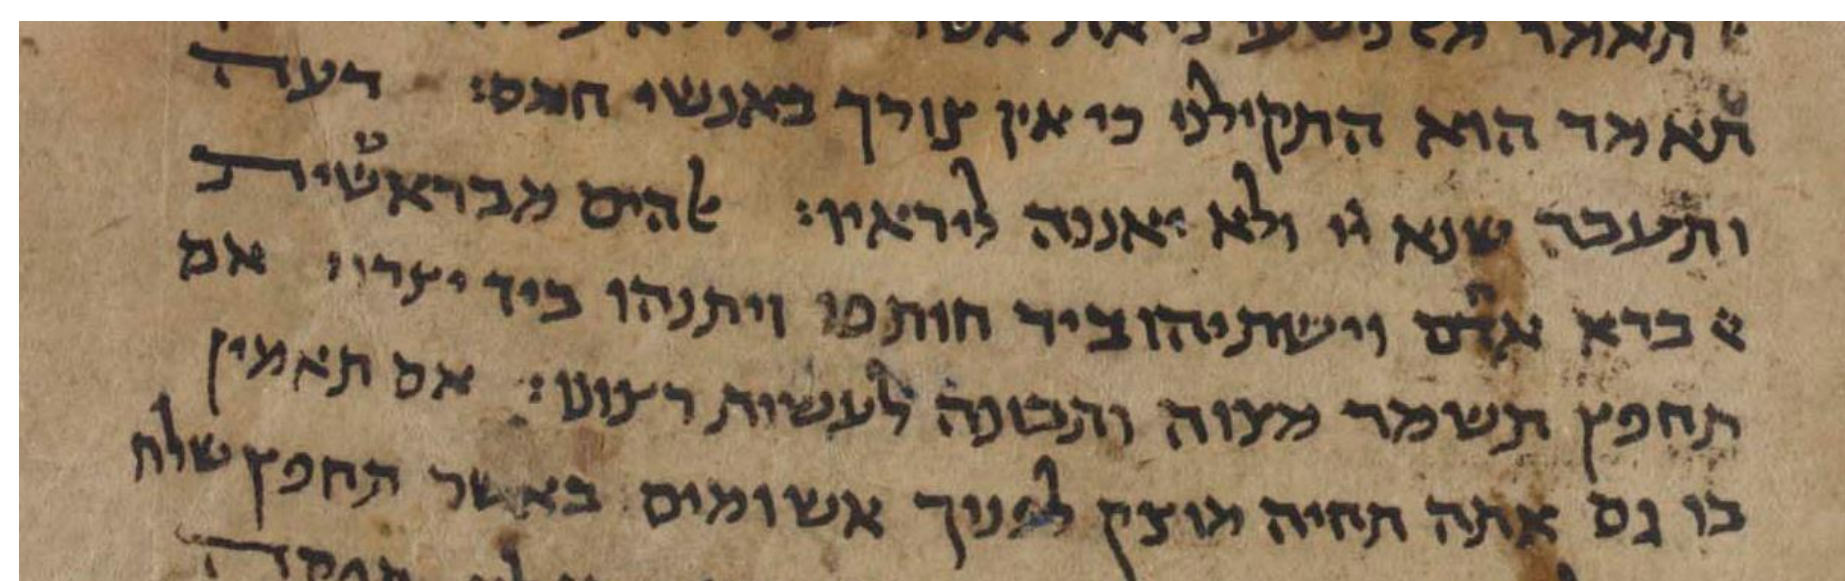 תאמר מאל פשעי כי את אשר שנא לא עשה
תאמר הוא התקילני כי אין צורך באנשי חמס: רעה
ותעבה שנא ייי ולא יאננה ליראיו: אלהים מבראשית
ברא אדם וישתיהו ביד חותפו ויתנהו ביד יצרו: אם
תחפץ תשמר מצוה ותבונה לעשות רצונו: אם תאמין
בו גם אתה תחיה מוצק לפניך אש ומים באשר תחפץ שלח